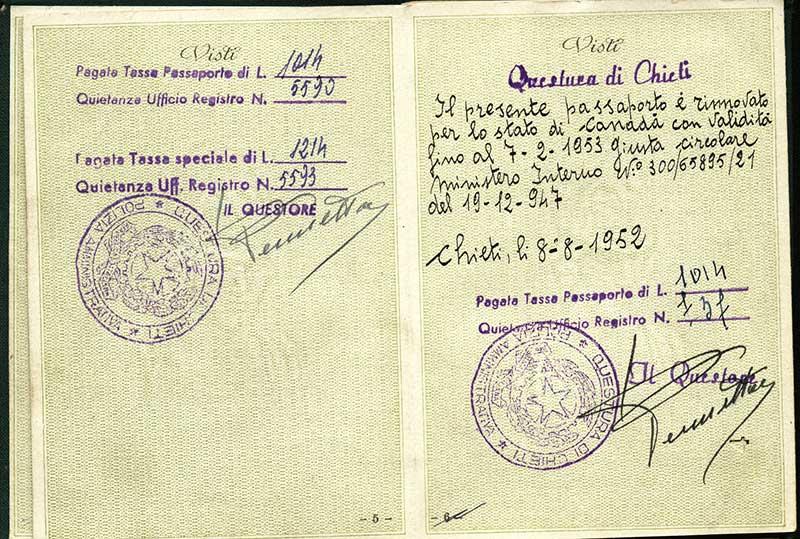 Visti
Pagata Tassa Passaporto di L. 1014
Quietanza Ufficio Registro N. 5590
Pagata Tassa speciale di L. 1214
Quietanza Uff. Registro N. 5593
IL QUESTORE
QUESTURA DI CHIETI
POLIZIA AMMINISTRATIVA
- 5 -
Visti
Questura di Chieti
Il presente passaporto è rinnovato
per lo stato di Canadà con validità
fino al 7-2-1953 giusta circolare
Ministero Interno N.° 300/65895/21
del 19-12-947
Chieti, li 8-8-1952
Pagata Tassa Passaporto di L. 1014
Quietanza Ufficio Registro N.
Il Questore
QUESTURA DI CHIETI
POLIZIA AMMINISTRATIVA
- 6 -